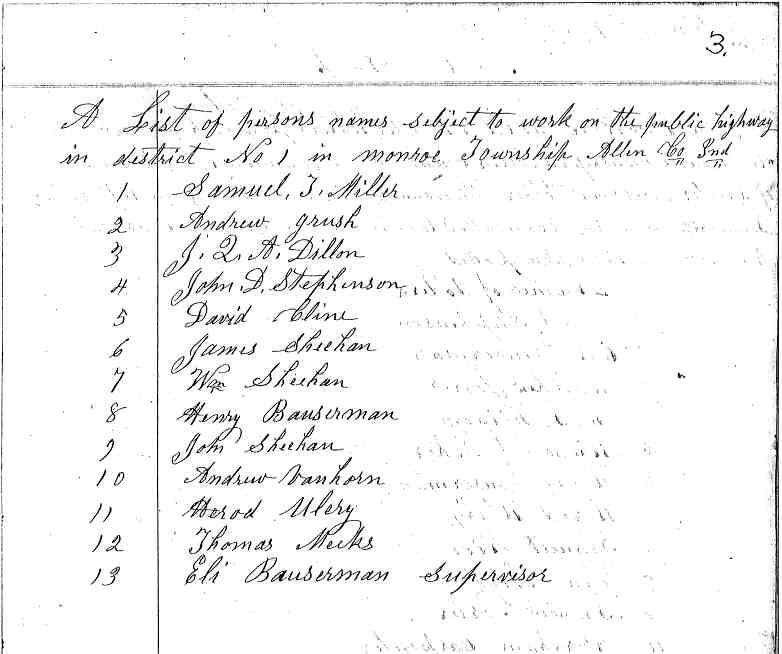 3.
A List of persons names subject to work on the public highway
in district No 1 in monroe Township Allen Co Ind
1 Samuel, T. Miller
2 Andrew grush
3 J. Q. A. Dillon
4 John. D. Stephenson
5 David Cline
6 James Sheehan
7 Wm Sheehan
8 Henry Bauserman
9 John Sheehan
10 Andrew Vanhorn
11 Herod Ulery
12 Thomas Meeks
13 Eli Bauserman Supervisor